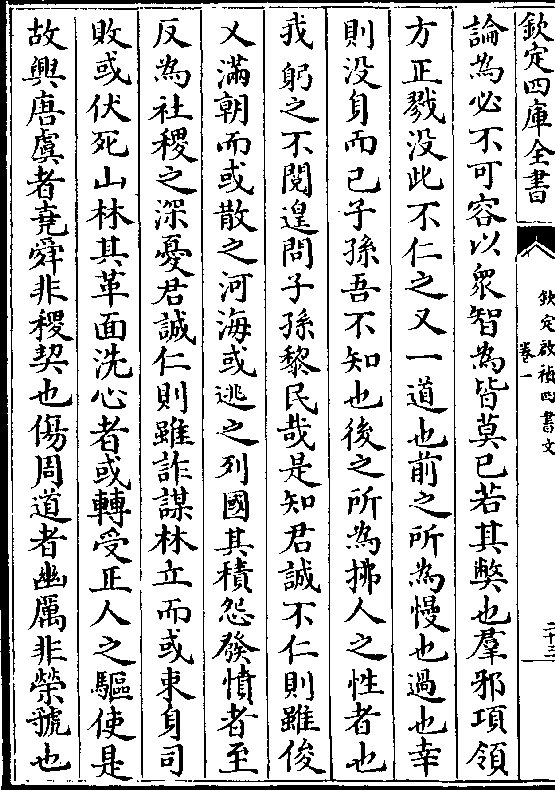 欽定四庫全書
欽定啟禎四書文
卷一
二十三
論為必不可容以衆智為皆莫已若其弊也羣邪項領
方正戮没此不仁之又一道也前之所為慢也過也幸
則没身而已子孫吾不知也後之所為拂人之性者也
我躬之不閱遑問子孫黎民哉是知君誠不仁則雖俊
乂滿朝而或散之河海或逃之列國其積怨發憤者至
反為社稷之深憂君誠仁則雖詐謀林立而或束身司
敗或伏死山林其革面洗心者或轉受正人之驅使是
故興唐虞者堯舜非稷契也傷周道者幽厲非榮虢也